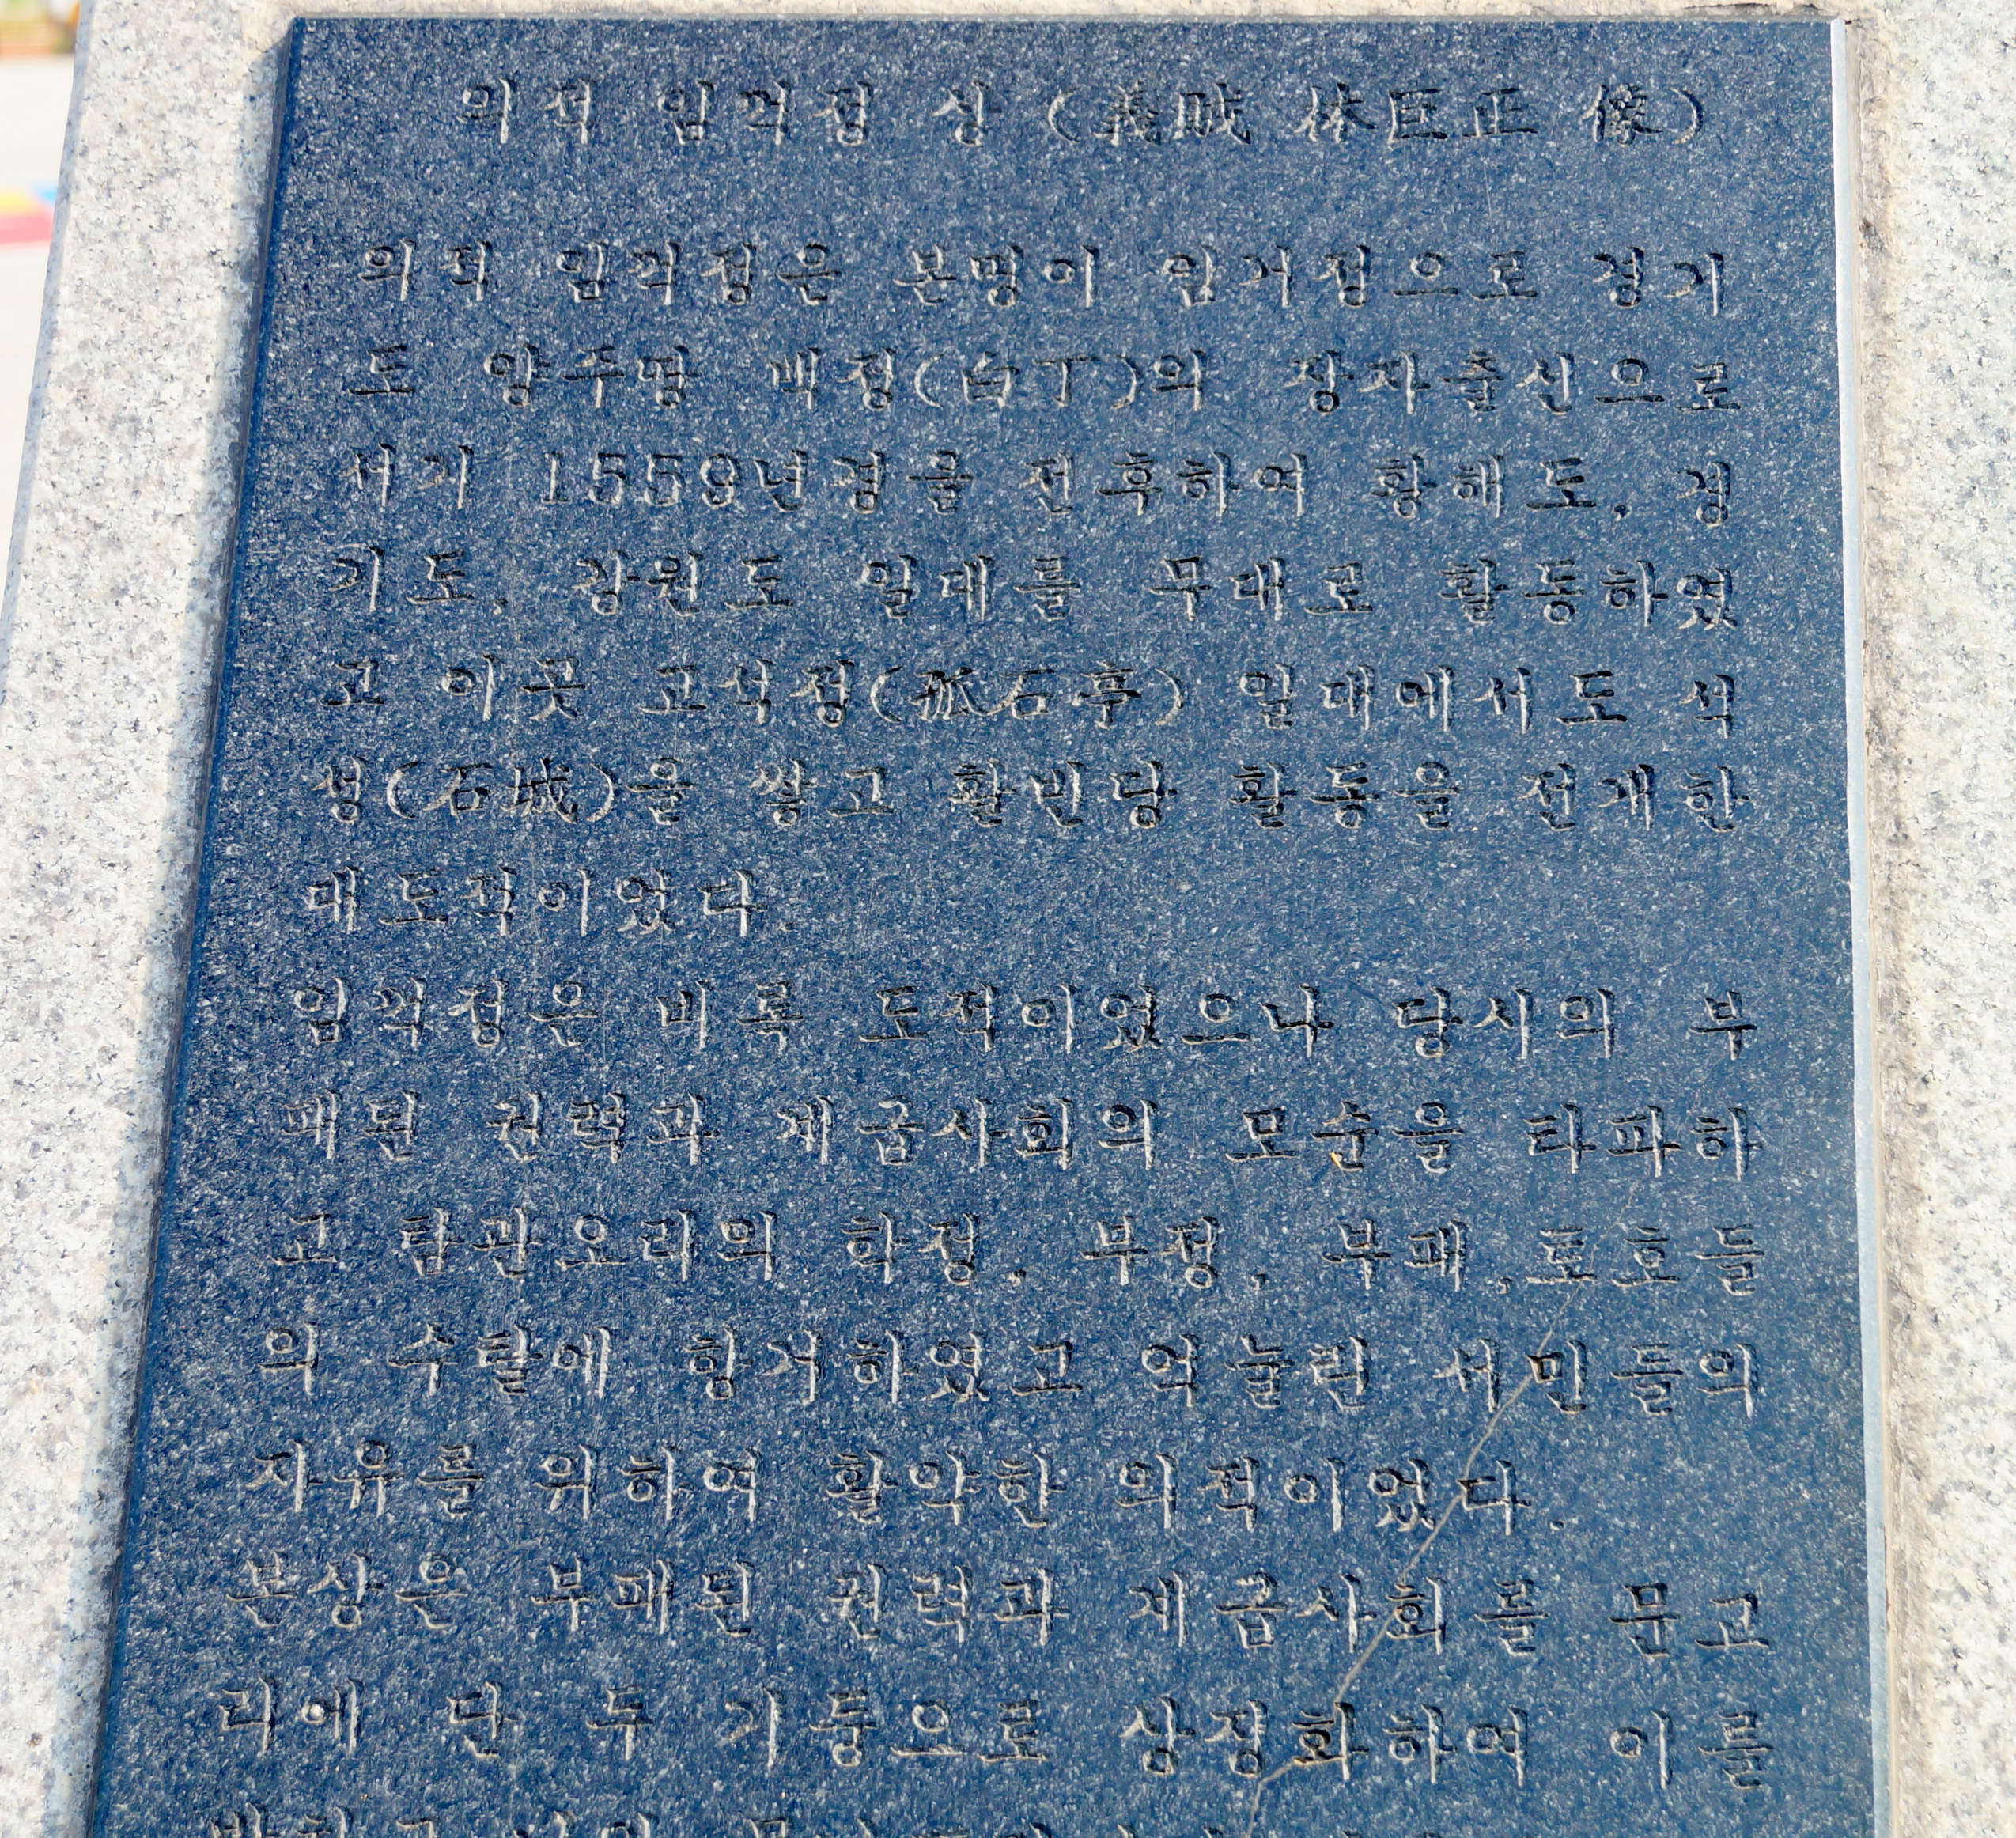 의적 임꺽정 상 (義賊 林巨正 像)
의적 임꺽정은 본명이 임거정으로 경기
도 양주땅 백정(白丁)의 장자출신으로
서기 1559년경을 전후하여 황해도, 경
기도, 강원도 일대를 무대로 활동하였
고 이곳 고석정(孤石亭) 일대에서도 석
성(石城)을 쌓고 활빈당 활동을 전개한
대도적이었다.
임꺽정은 비록 도적이었으나 당시의 부
패된 권력과 계급사회의 모순을 타파하
고 탐관오리의 학정, 부정, 부패,토호들
의 수탈에 항거하였고 억눌린 서민들의
자유를 위하여 활약한 의적이었다.
본상은 부패된 권력과 계급사회를 문고
리에 단 두 기둥으로 상징화하여 이를